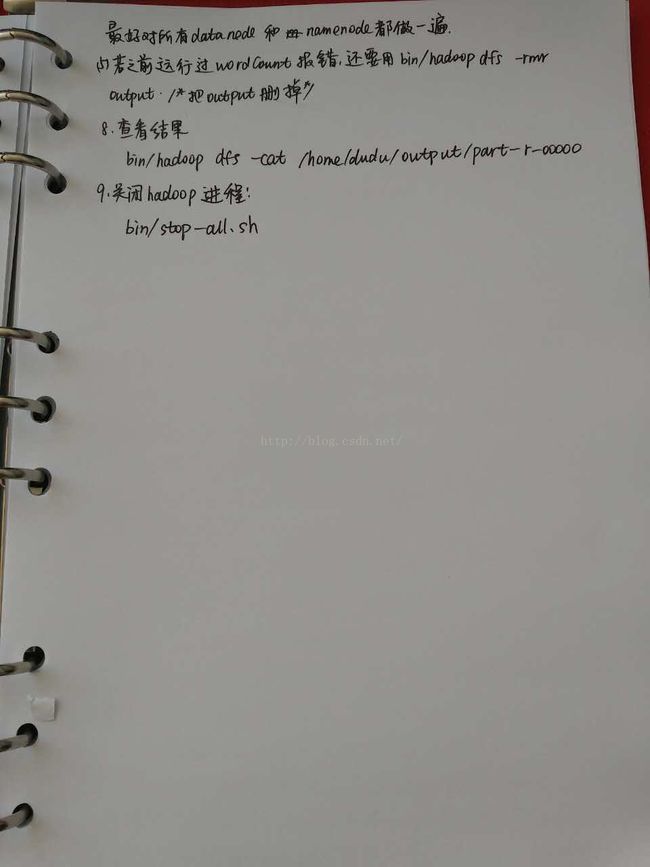 最好对所有datanode 和 namenode都做一遍.
(5)若之前运行过wordcount报错,还要用bin/hadoop dfs -rmr
output. /*把output删掉*/
8.查看结果
bin/hadoop dfs -cat /home/dudu/output/part-r-00000
9.关闭hadoop进程:
bin/stop-all.sh
http://blog.csdn.net/